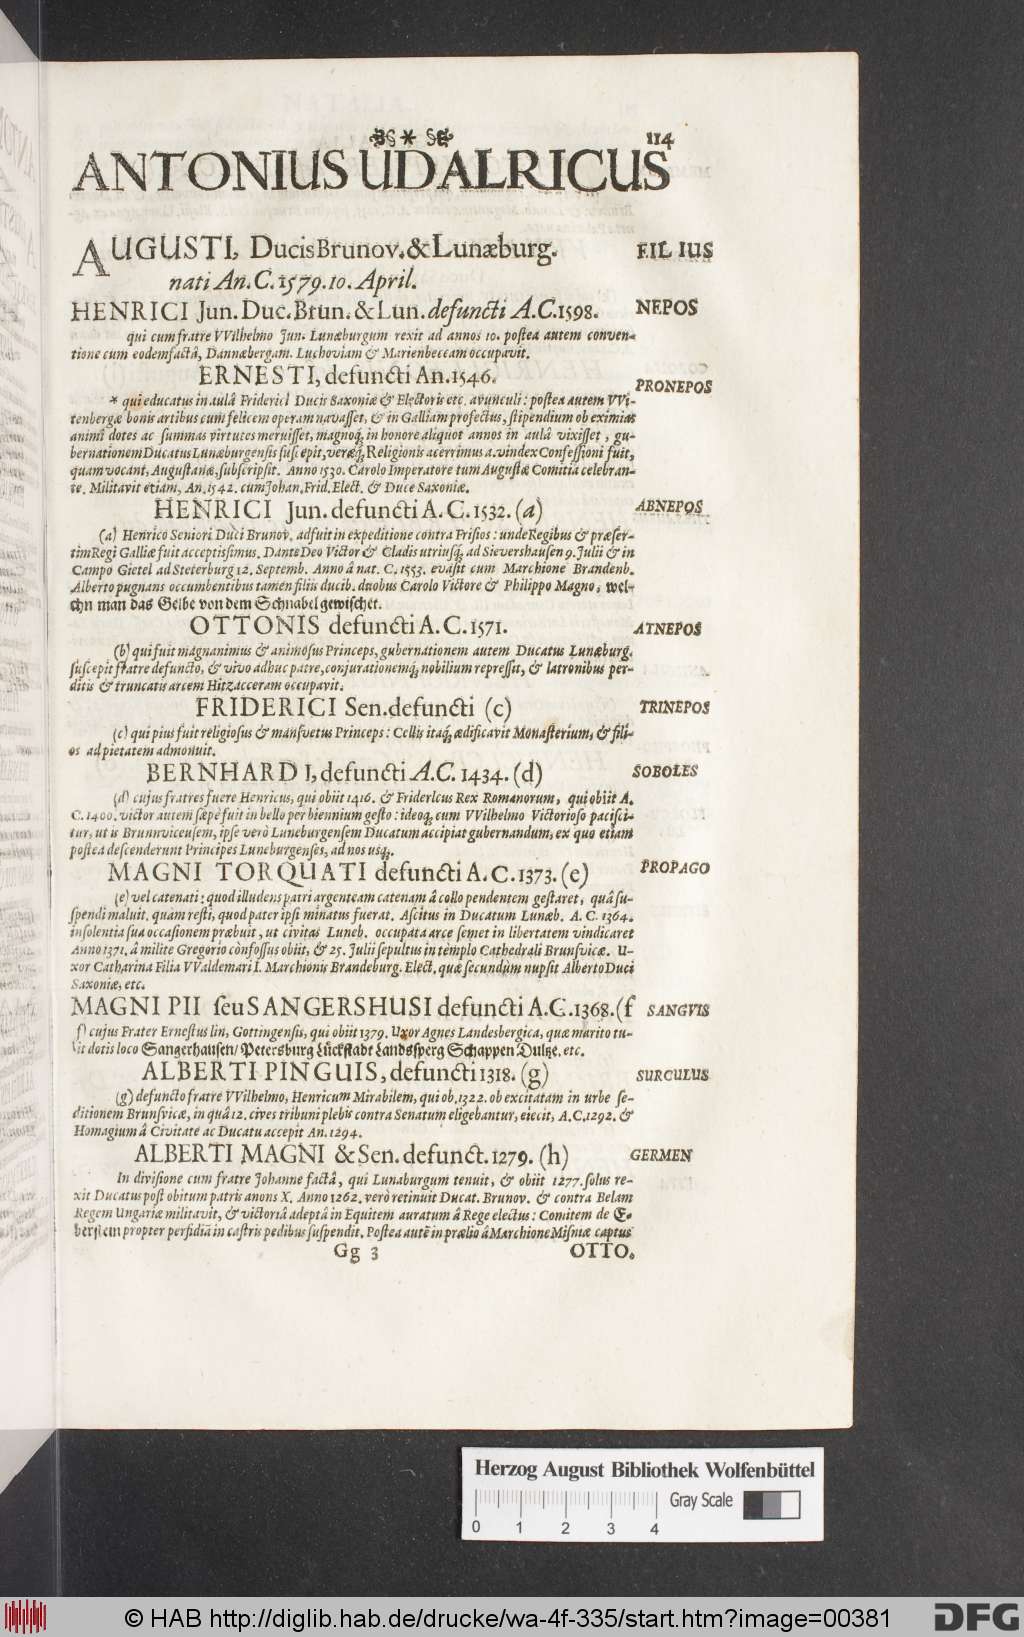 114
ANTONIUS UDALRICUS
AUGUSTI, Ducis Brunov. & Lunæburg. FILIUS
nati An. C. 1579. 10. April.
HENRICI Jun. Duc. Brun. & Lun. defuncti A.C. 1598. NEPOS
qui cum fratre VVilhelmo Jun. Lunæburgum rexit ad annos 10. postea autem conven-
tione cum eodem factâ, Dannæbergam. Luchoviam & Marienbeccam occupavit.
ERNESTI, defuncti An. 1546. PRONEPOS
* qui educatus in aulâ Friderici Ducis Saxoniæ & Electoris etc. avunculi: postea autem VVi-
tenbergæ bonis artibus cum felicem operam navasset, & in Galliam profectus, stipendium ob eximias
animi dotes ac summas virtutes meruisset, magnoq; in honore aliquot annos in aulâ vixisset, gu-
bernationem Ducatus Lunæburgensis suscepit, veræq; Religionis acerrimus a. vindex Confessioni fuit,
quam vocant, Augustanæ, subscripsit. Anno 1530. Carolo Imperatore tum Augustæ Comitia celebran-
te. Militavit etiam, An. 1542. cum Johan. Frid. Elect. & Duce Saxoniæ.
HENRICI Jun. defuncti A. C. 1532. (a) ABNEPOS
(a) Henrico Seniori Duci Brunov. adfuit in expeditione contra Frisios: unde Regibus & præser-
tim Regi Galliæ fuit acceptissimus. Dante Deo Victor & Cladis utriusq; ad Sievershausen 9. Julii & in
Campo Gietel ad Steterburg 12. Septemb. Anno â nat. C. 1553. evasit cum Marchione Brandenb.
Alberto pugnans occumbentibus tamen filiis ducib. duobus Carolo Victore & Philippo Magno, wel-
chn man das Gelbe von dem Schnabel gewischet.
OTTONIS defuncti A. C. 1571. ATNEPOS
(b) qui fuit magnanimus & animosus Princeps, gubernationem autem Ducatus Lunæburg.
suscepit fratre defuncto, & vivo adhuc patre, conjurationemq; nobilium repressit, & latronibus per-
ditis & truncatis arcem Hitzacceram occupavit.
FRIDERICI Sen. defuncti (c) TRINEPOS
(c) qui pius fuit religiosus & mansvetus Princeps: Cellis itaq; ædificavit Monasterium, & fili-
os ad pietatem admonuit.
BERNHARD I, defuncti A.C. 1434. (d) SOBOLES
(d) cujus fratres fuere Henricus, qui obiit 1416. & Fridericus Rex Romanorum, qui obiit A.
C. 1400. victor autem sæpe fuit in bello per biennium gesto: ideoq; cum VVilhelmo Victorioso pacisci-
tur, ut is Brunnvicensem, ipse verò Luneburgensem Ducatum accipiat gubernandum, ex quo etiam
postea descenderunt Principes Luneburgenses, ad nos usq;.
MAGNI TORQUATI defuncti A. C. 1373. (e) PROPAGO
(e) vel catenati: quod illudens patri argenteam catenam â collo pendentem gestaret, quâ su-
spendi maluit, quam resti, quod pater ipsi minatus fuerat. Ascitus in Ducatum Lunæb. A. C. 1364.
insolentia sua occasionem præbuit, ut civitas Luneb. occupata arce semet in libertatem vindicaret
Anno 1371. â milite Gregorio confossus obiit, & 25. Julii sepultus in templo Cathedrali Brunsvicæ. U-
xor Catharina Filia VValdemari I. Marchionis Brandeburg. Elect. quæ secundùm nupsit Alberto Duci
Saxoniæ, etc.
MAGNI PII seu SANGERSHUSI defuncti A. C. 1368. (f SANGVIS
f) cujus Frater Ernestus lin, Gottingensis, qui obiit 1379. Uxor Agnes Landesbergica, quæ marito tu-
lit dotis loco Sangerhausen/ Petersburg Lückstadt Landssperg Schappen Dultze, etc.
ALBERTI PINGUIS, defuncti 1318. (g) SURCULUS
(g) defuncto fratre VVilhelmo, Henricum Mirabilem, qui ob. 1322. ob excitatam in urbe se-
ditionem Brunsvicæ, in quâ 12. cives tribuni plebis contra Senatum eligebantur, eiecit, A.C. 1292. &
Homagium â Civitate ac Ducatu accepit An. 1294.
ALBERTI MAGNI & Sen. defunct. 1279. (h) GERMEN
In divisione cum fratre Johanne factâ, qui Lunaburgum tenuit, & obiit 1277. solus re-
xit Ducatus post obitum patris anons X. Anno 1262. verò retinuit Ducat. Brunov. & contra Belam
Regem Ungariæ militavit, & victoriâ adeptâ in Equitem auratum â Rege electus: Comitem de E-
berstein propter perfidiâ in castris pedibus suspendit. Postea autē in prælio â Marchione Misniæ captus
Gg 3 OTTO.
Herzog August Bibliothek Wolfenbüttel
Gray Scale
0 1 2 3 4
© HAB http://diglib.hab.de/drucke/wa-4f-335/start.htm?image=00381
DFG